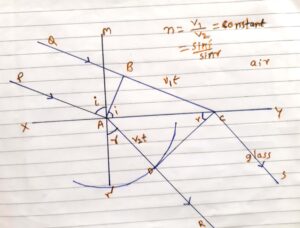 M
n = v₁/v₂ = constant
= sini/sinr
Q
air
P
B
v₁t
i
i
X
A
r
C
Y
r
v₂t
glass
D
S
r'
R